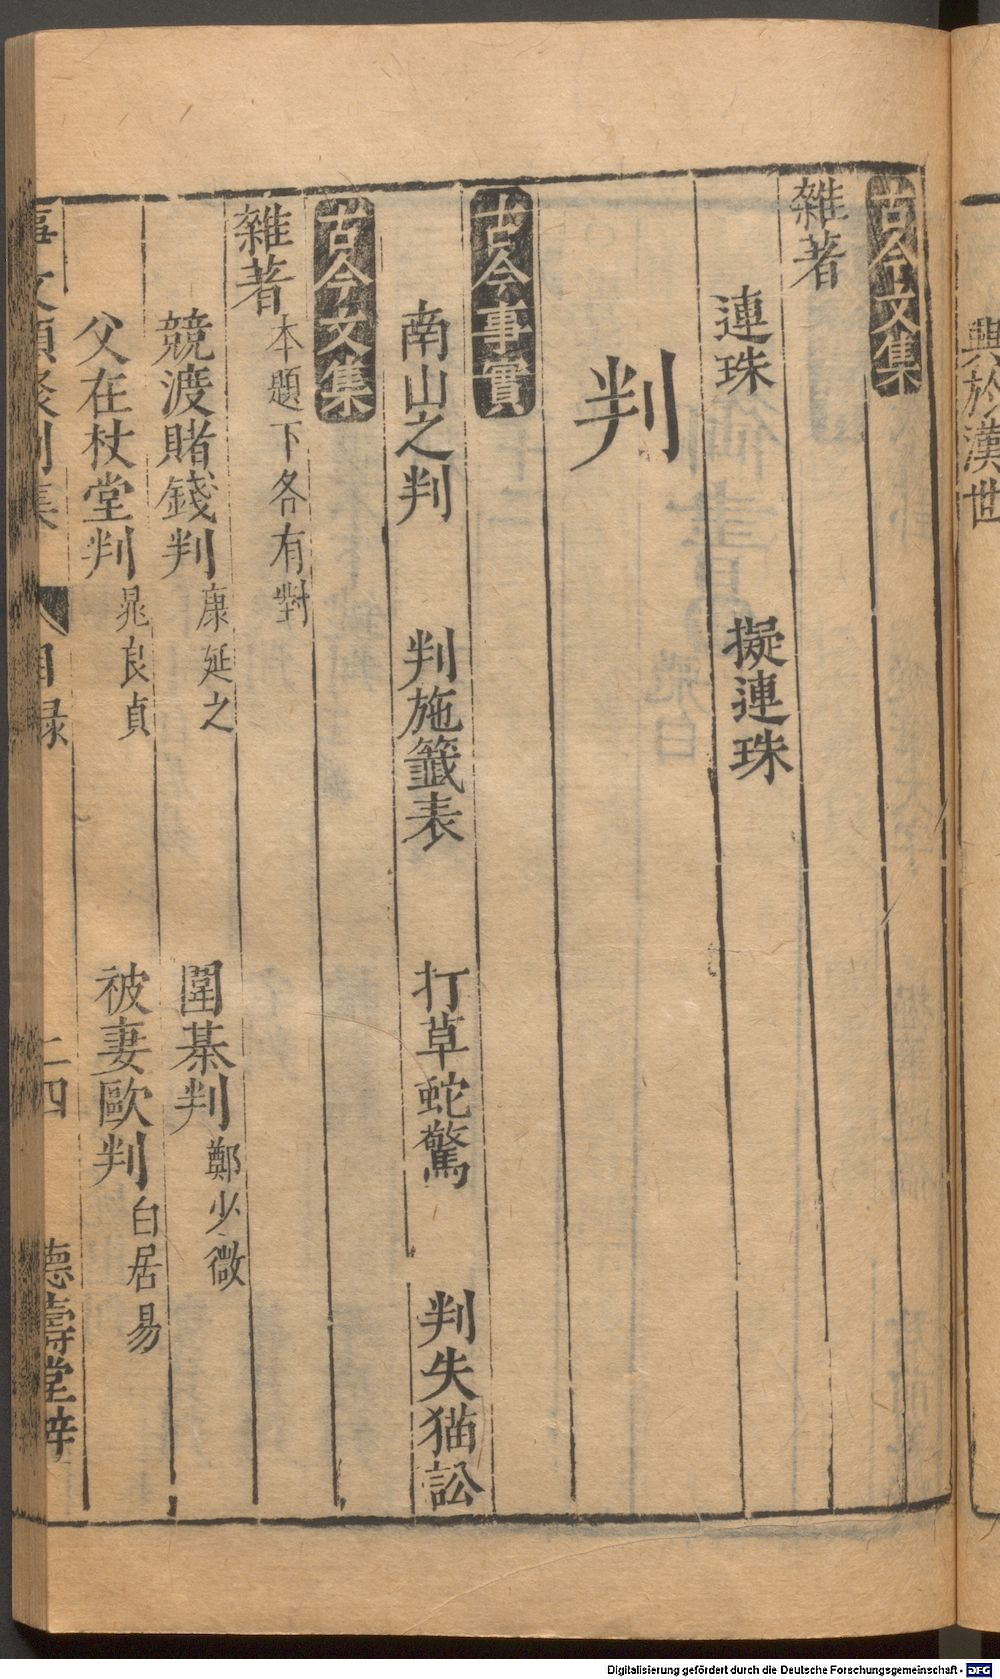 興於漢世
古今文集
雜著
連珠　擬連珠
判
古今事實
南山之判　判施籖表　打草蛇驚　判失猫訟
古今文集
雜著 本題下各有對
競渡賭錢判 康延之　圍棊判 鄭少微
父在杖堂判 晁良貞　被妻毆判 白居易
事文類聚別集　目録　二四　德壽堂梓
Digitalisierung gefördert durch die Deutsche Forschungsgemeinschaft - DFG